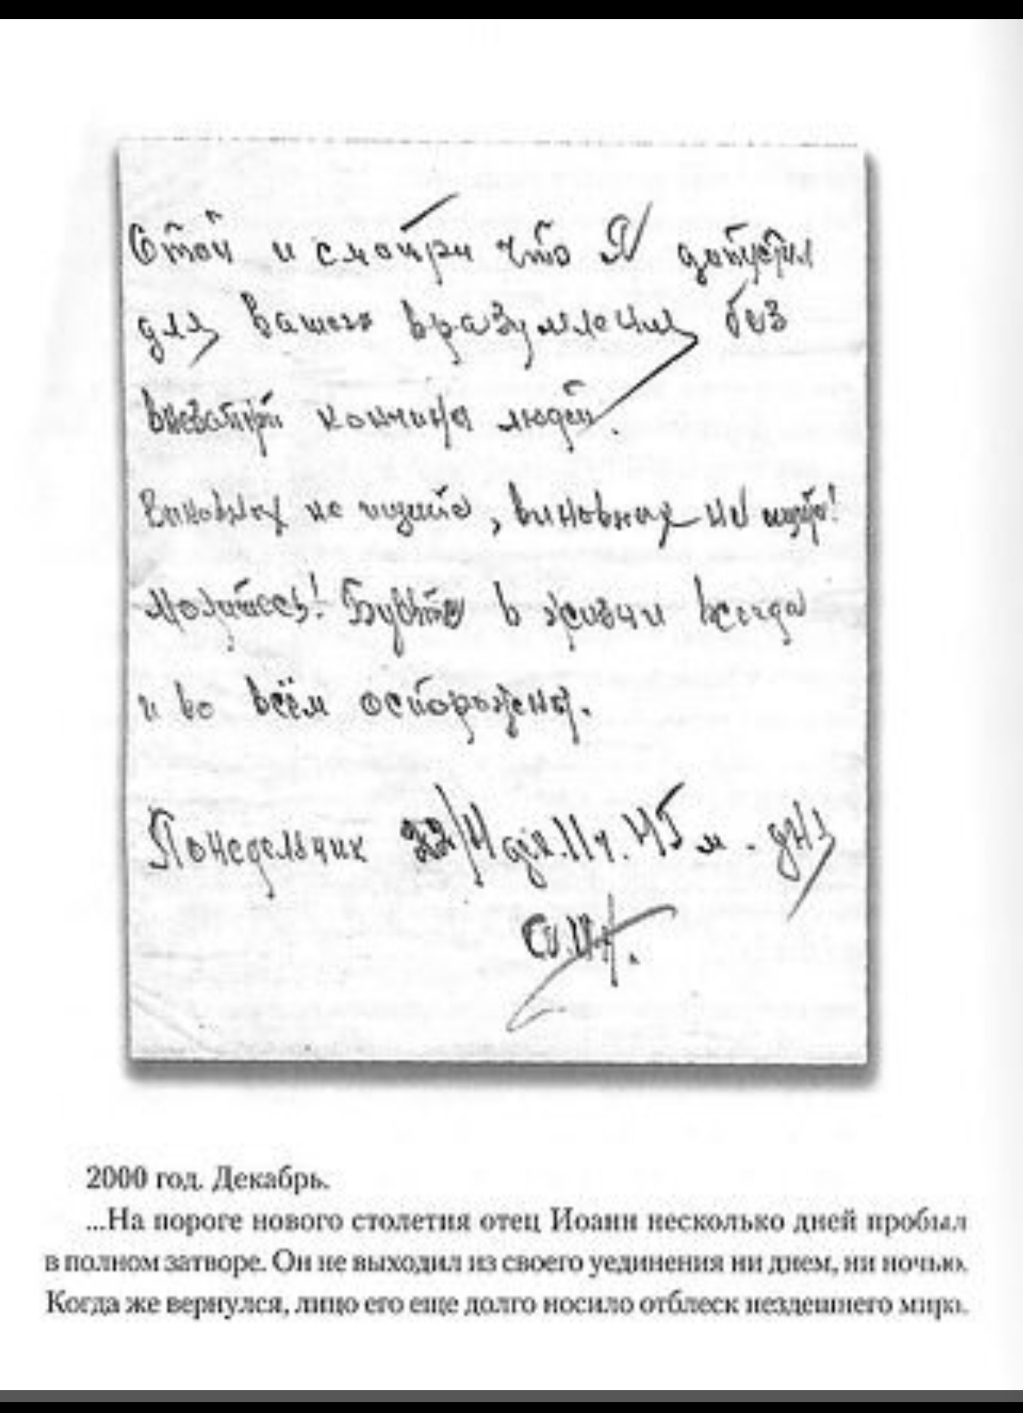 Стой и смотри что Я допустил
для вашего вразумления без
внезапной кончины людей.
Виновных не ищите, виновных не ищите!
Молитесь! Будьте в жизни всегда
и во всём осторожны.
Понедельник 11ч. 45 м. дня
2000 год. Декабрь.
...На пороге нового столетия отец Иоанн несколько дней пробыл
в полном затворе. Он не выходил из своего уединения ни днем, ни ночью.
Когда же вернулся, лицо его еще долго носило отблеск нездешнего мира.